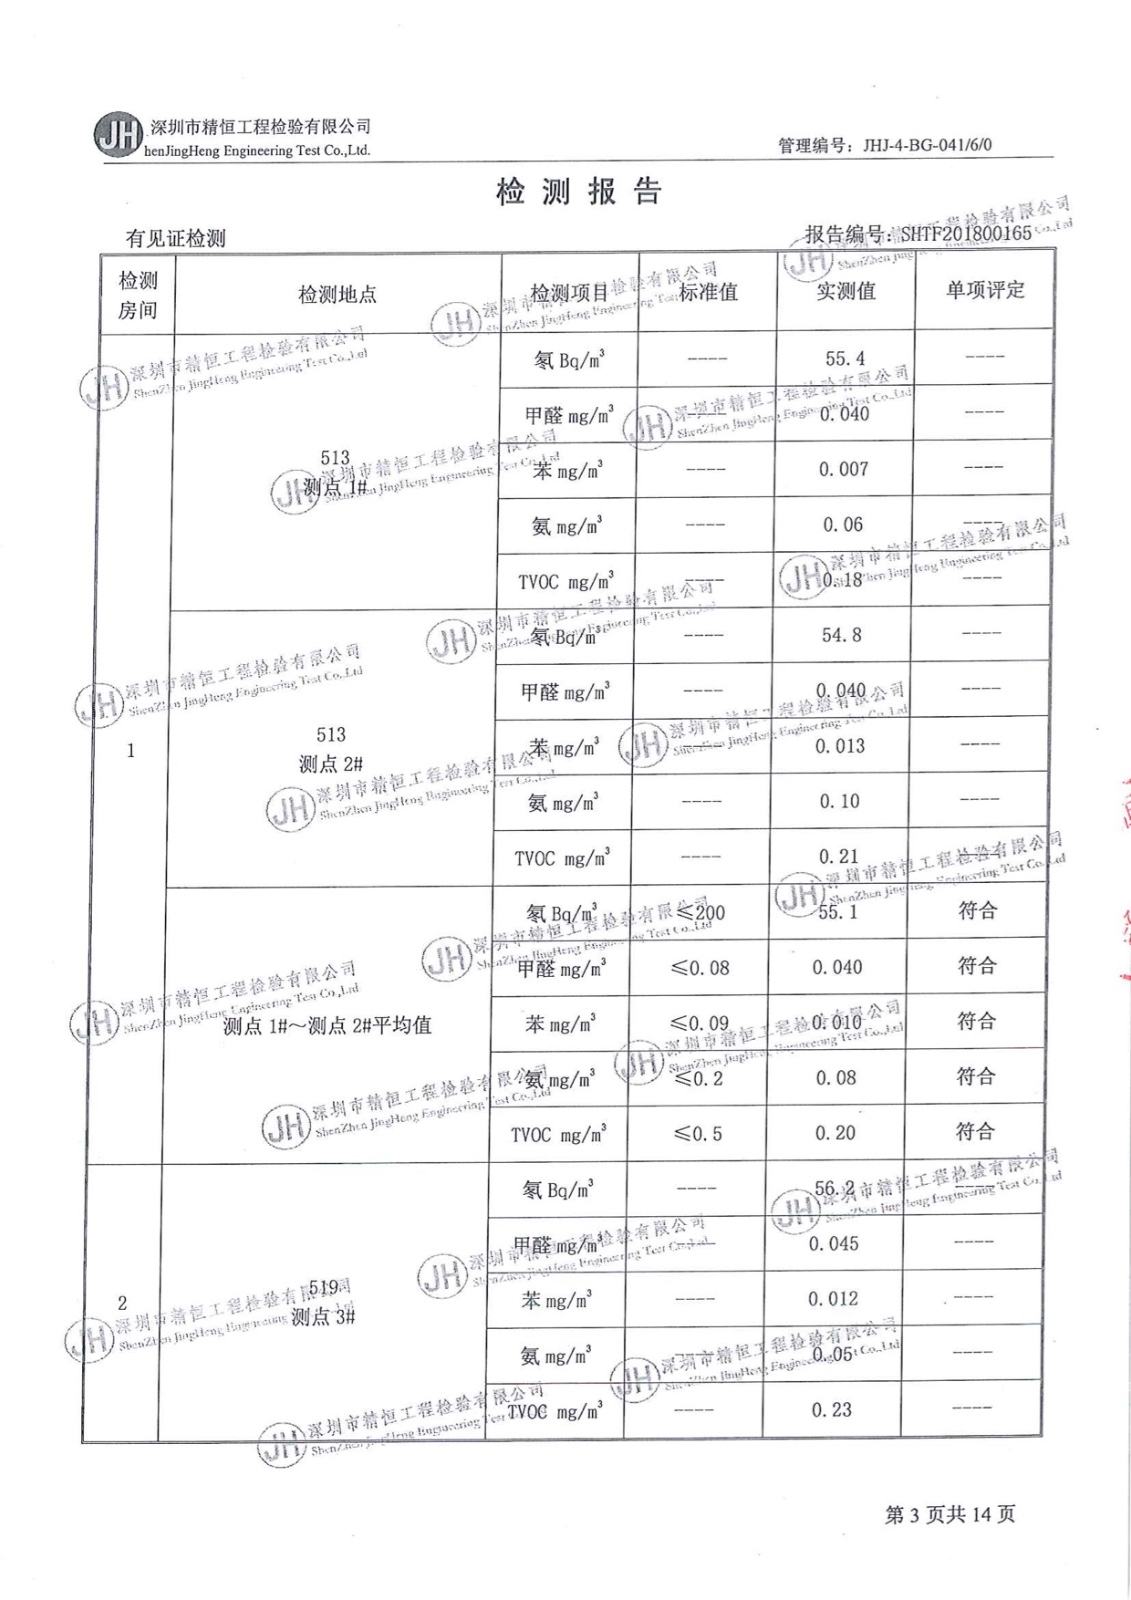 JH 深圳市精恒工程检验有限公司
henJingHeng Engineering Test Co.,Ltd.
管理编号：JHJ-4-BG-041/6/0
检测报告
有见证检测
报告编号：SHTF201800165
检测房间 检测地点 检测项目 标准值 实测值 单项评定
1
513
测点 1#
氡 Bq/m³ ---- 55.4 ----
甲醛 mg/m³ ---- 0.040 ----
苯 mg/m³ ---- 0.007 ----
氨 mg/m³ ---- 0.06 ----
TVOC mg/m³ ---- 0.18 ----
513
测点 2#
氡 Bq/m³ ---- 54.8 ----
甲醛 mg/m³ ---- 0.040 ----
苯 mg/m³ ---- 0.013 ----
氨 mg/m³ ---- 0.10 ----
TVOC mg/m³ ---- 0.21 ----
测点 1#～测点 2#平均值
氡 Bq/m³ ≤200 55.1 符合
甲醛 mg/m³ ≤0.08 0.040 符合
苯 mg/m³ ≤0.09 0.010 符合
氨 mg/m³ ≤0.2 0.08 符合
TVOC mg/m³ ≤0.5 0.20 符合
2
519
测点 3#
氡 Bq/m³ ---- 56.2 ----
甲醛 mg/m³ ---- 0.045 ----
苯 mg/m³ ---- 0.012 ----
氨 mg/m³ ---- 0.05 ----
TVOC mg/m³ ---- 0.23 ----
JH 深圳市精恒工程检验有限公司
ShenZhen JingHeng Engineering Test Co.,Ltd
第 3 页共 14 页